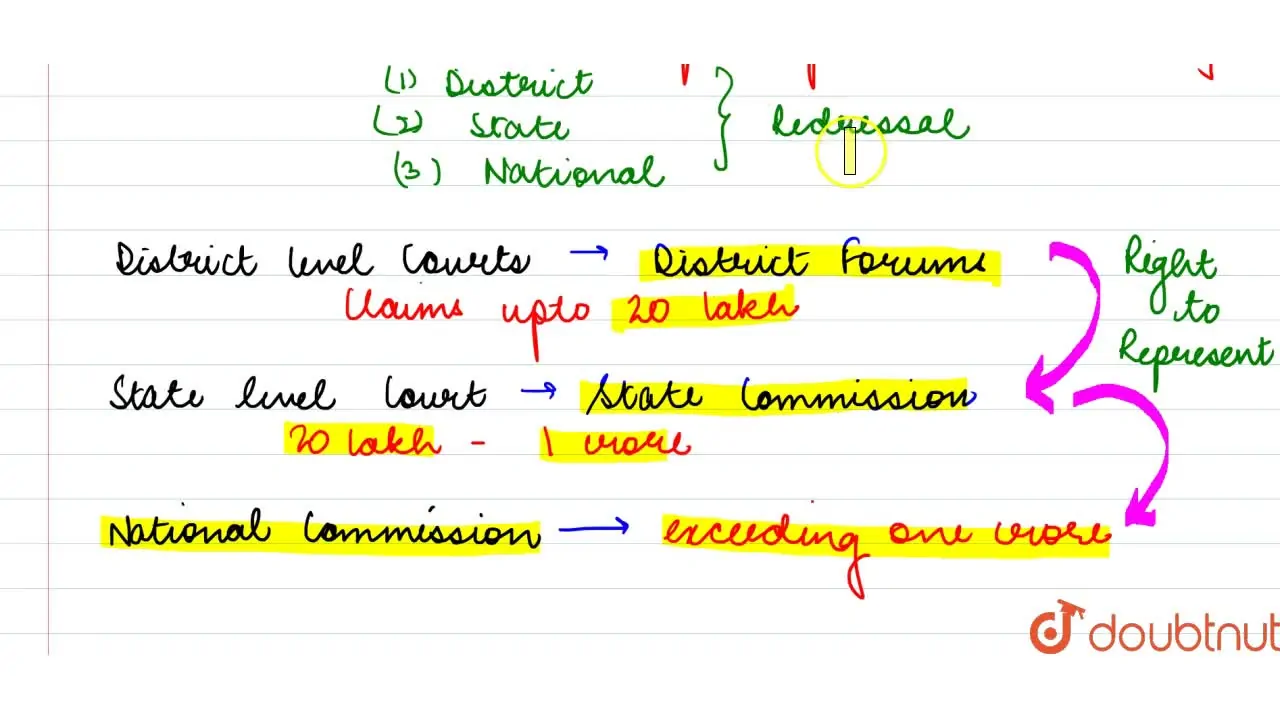 (1) District
(2) State
(3) National
Redressal
District level Courts → District Forums
Claims upto 20 lakh
State level Court → State Commission
20 lakh - 1 crore
National Commission → exceeding one crore
Right
to
Represent
doubtnut